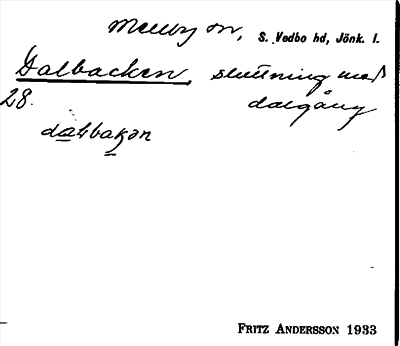 Mellby sn, S. Vedbo hd, Jönk. l.
Dalbacken, sluttning med
28. dalgång
dalbakən
FRITZ ANDERSSON 1933